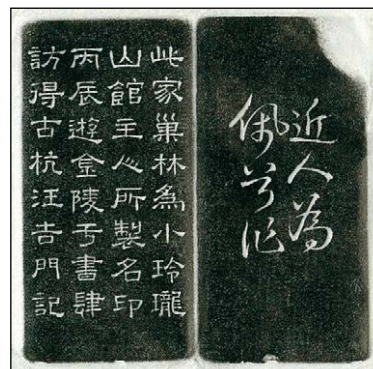 近人為
佩兮作
此家巢林為小玲瓏
山館主人所製名印
丙辰遊金陵于書肆
訪得古杭汪吉門記